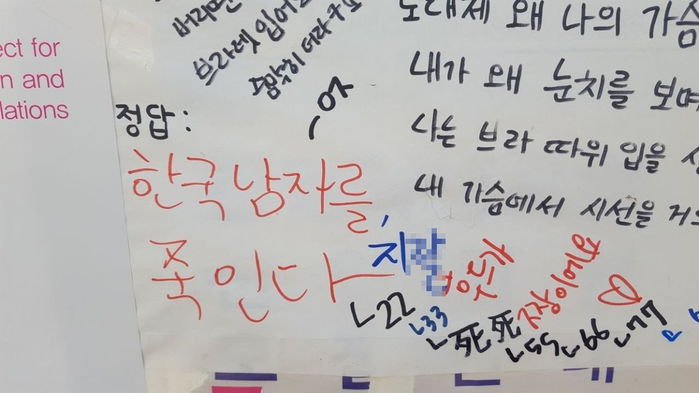 ect for
n and
lations
버리면
브라렛 입어도
노대체 왜 나의 가슴
내가 왜 눈치를 보며
나는 브라 따위 입을
내 가슴에서 시선을 거
정답:
한국남자를,
죽인다
우두가
지장이에요
ㄴ22
ㄴ33
ㄴ死死
ㄴ55
ㄴ66
ㄴ77